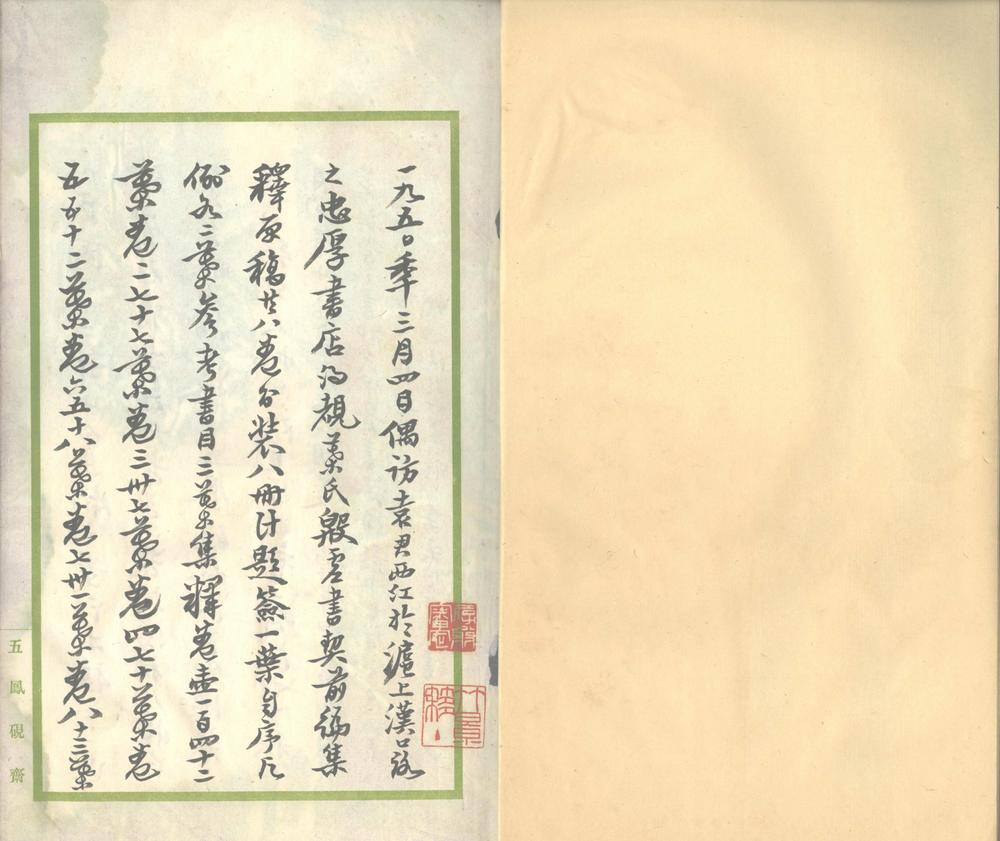 一九五〇秊三月四日偶访袁君西江於滬上漢口路
之忠厚書店得覩葉氏殷虛書契前編集
釋原稿共八卷分裝八冊計題簽一葉自序凡
例各二葉参考書目三葉集釋卷壹一百四十二
葉卷二七十七葉卷三卅七葉卷四七十葉卷
五五十二葉卷六五十八葉卷七卅一葉卷八十三葉
五鳳硯齋